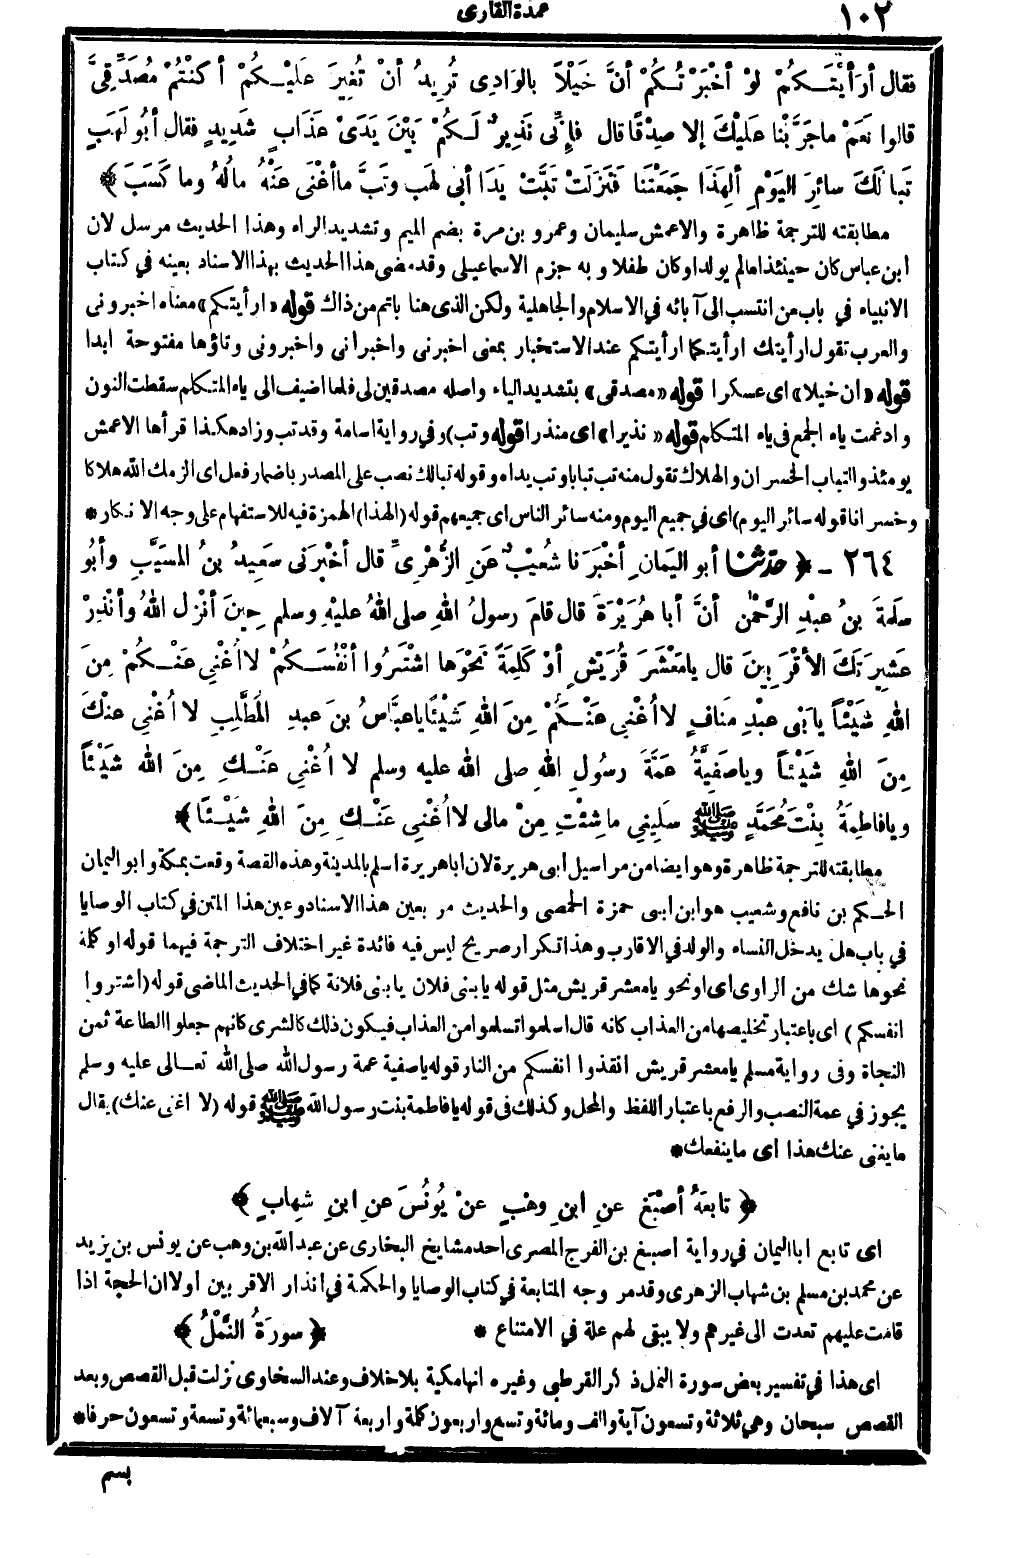 ١٠٢
عمدة القارى
فقال أرَأَيْتَـكُمْ لَوْ أخْبَرْتُـكُمْ أنَّ خَيْلاً بالوَادِى تُرِيدُ أنْ تُغِيرَ عَلَيْـكُمْ أ كُنْتُمْ مُصَدِّقِيَّ
قالوا نَعَمْ ماجَرَّبْنا عَلَيْكَ إلا صِدْقًا قال فإنِّى نَذِيرٌ لَـكُمْ بَيْنَ يَدَىْ عَذَابٍ شَدِيدٍ فقال أبُو لَهَبٍ
تَبا لَكَ سائِرَ اليَوْمِ ألِهَذَا جَمَعْتَنَا فَنَزَلَتْ تَبَّتْ يَدَا أبى لَهب وتَبَّ ماأغْنَى عَنْهُ مالُهُ وما كَسَبَ ﴾
مطابقته للترجمة ظاهرة والاعمش سليمان وعمرو بن مرة بضم الميم وتشديد الراء وهذا الحديث مرسل لان
ابن عباس كان حينئذ اما لم يولد او كان طفلا و به جزم الاسماعيلى وقد مضى هذا الحديث بهذا الاسناد بعينه في كتاب
الانبياء في باب من انتسب الى آبائه في الاسلام والجاهلية ولكن الذى هنا باتم من ذاك قوله «ارأيتكم» معناه اخبرونى
والعرب تقول ارأيتك ارأيتكما ارأيتكم عند الاستخبار بمعنى اخبرنى واخبرانى واخبرونى وتاؤها مفتوحة ابدا
قوله «ان خيلا» اى عسكرا قوله «مصدقى» بتشديد الياء واصله مصدقين لى فلما اضيف الى ياء المتكلم سقطت النون
وادغمت ياء الجمع فى ياء المتكلم قوله «نذيرا» اى منذرا قوله وتب) وفي رواية اسامة وقد تب وزاد هكذا قرأها الاعمش
يومئذ والتباب الخسران والهلاك تقول منه تب تبابا وتب يداه وقوله تبالك نصب على المصدر باضمار فعل اى الزمك الله هلاكا
وخسرانا قوله سائر اليوم) اى في جميع اليوم ومنه سائر الناس اى جميعهم قوله (الهذا) الهمزة فيه للاستفهام على وجه الانكار *
٢٦٤ – ﴿ حدّثنا أبو اليَمانِ أخْبَرَنا شُعَيْبٌ عَنِ الزُّهْرِىِّ قال أخْبَرَنى سَعِيدُ بنُ المُسَيَّبِ وأبُو
سلَمةَ بنُ عبْدِ الرَّحْمٰنِ أنَّ أبا هُرَيْرَةَ قال قامَ رسولُ اللهِ صلى اللهُ عليْهِ وسلم حِينَ أنْزَلَ اللهُ وأنْذِرْ
عَشِيرَتَكَ الأقْرَ بِينَ قال يامَعْشَرَ قُرَيْشٍ أوْ كَلِمَةً نَحْوَها اشْتَرُوا أنْفُسَـكُمْ لا أُغْنِى عَنْـكُمْ مِنَ
اللهِ شَيْئاً يا بَنِى عبْدِ مَنافٍ لا أُغْنِى عَنْـكُمْ مِنَ اللهِ شَيْئًا ياعبَّاسُ بنَ عبدِ المُطَّلِبِ لا أُغْنِى عنْكَ
مِنَ اللهِ شَيْئاً وياصَفِيَّةُ عَمَّةَ رسُولِ اللهِ صلى الله عليه وسلم لا أُغْنِى عَنْـكِ مِنَ اللهِ شَيْئاً
ويافاطِمةُ بِنْتَ مُحَمَّدٍ ﷺ سَلِينِى ما شِئْتِ مِنْ مالى لا أُغْنِى عَنْـكِ مِنَ اللهِ شَيْـئًا ﴾
مطابقته للترجمة ظاهرة وهو ايضا من مراسيل أبى هريرة لان اباهريرة اسلم بالمدينة وهذه القصة وقعت بمكة وابو اليمان
الحـكم بن نافع وشعيب هو ابن ابى حمزة الحمصى والحديث مر بعين هذا الاسناد وعين هذا المتن في كتاب الوصايا
في باب هل يدخل النساء والولد فى الاقارب وهذا تكرار صريح ليس فيه فائدة غير اختلاف الترجمة فيهما قوله او كلمة
نحوها شك من الراوى اى او نحو يامعشر قريش مثل قوله يابنى فلان يابنى فلانة كما في الحديث الماضى قوله (اشتروا
انفسكم) اى باعتبار تخليصها من العذاب كانه قال اسلموا تسلموا من العذاب فيكون ذلك كالشرى كانهم جعلوا الطاعة ثمن
النجاة وفى رواية مسلم يامعشر قريش انقذوا انفسكم من النار قوله ياصفية عمة رسول الله صلى الله تعـالى عليه وسلم
يجوز في عمة النصب والرفع باعتبار اللفظ والمحل وكذلك فى قوله يافاطمة بنت رسول الله ﷺ قوله (لا اغنى عنك) يقال
ما يغنى عنك هذا اى ما ينفعك *
﴿ تابعَهُ أصْبَغُ عنِ ابنِ وهْبٍ عنْ يُونُسَ عنِ ابنِ شِهابٍ ﴾
اى تابع اباليمان في رواية اصبغ بن الفرج المصرى احد مشايخ البخارى عن عبد الله بن وهب عن يونس بن يزيد
عن محمد بن مسلم بن شهاب الزهرى وقد مر وجه المتابعة في كتاب الوصايا والحكمة في انذار الاقربين اولا ان الحجة اذا
قامت عليهم تعدت الى غيرهم ولا يبقى لهم علة في الامتناع *
﴿ سورَةُ النَّمْلُ ﴾
اى هذا في تفسير بعض سورة النمل ذكر القرطبى وغيره انها مكية بلاخلاف وعند السخاوى نزلت قبل القصص وبعد
القصص سبحان وهي ثلاثة وتسعون آية والف ومائة وتسع واربعون كلمة واربعة آلاف وسبعمائة وتسعة وتسعون حرفا *
بسم